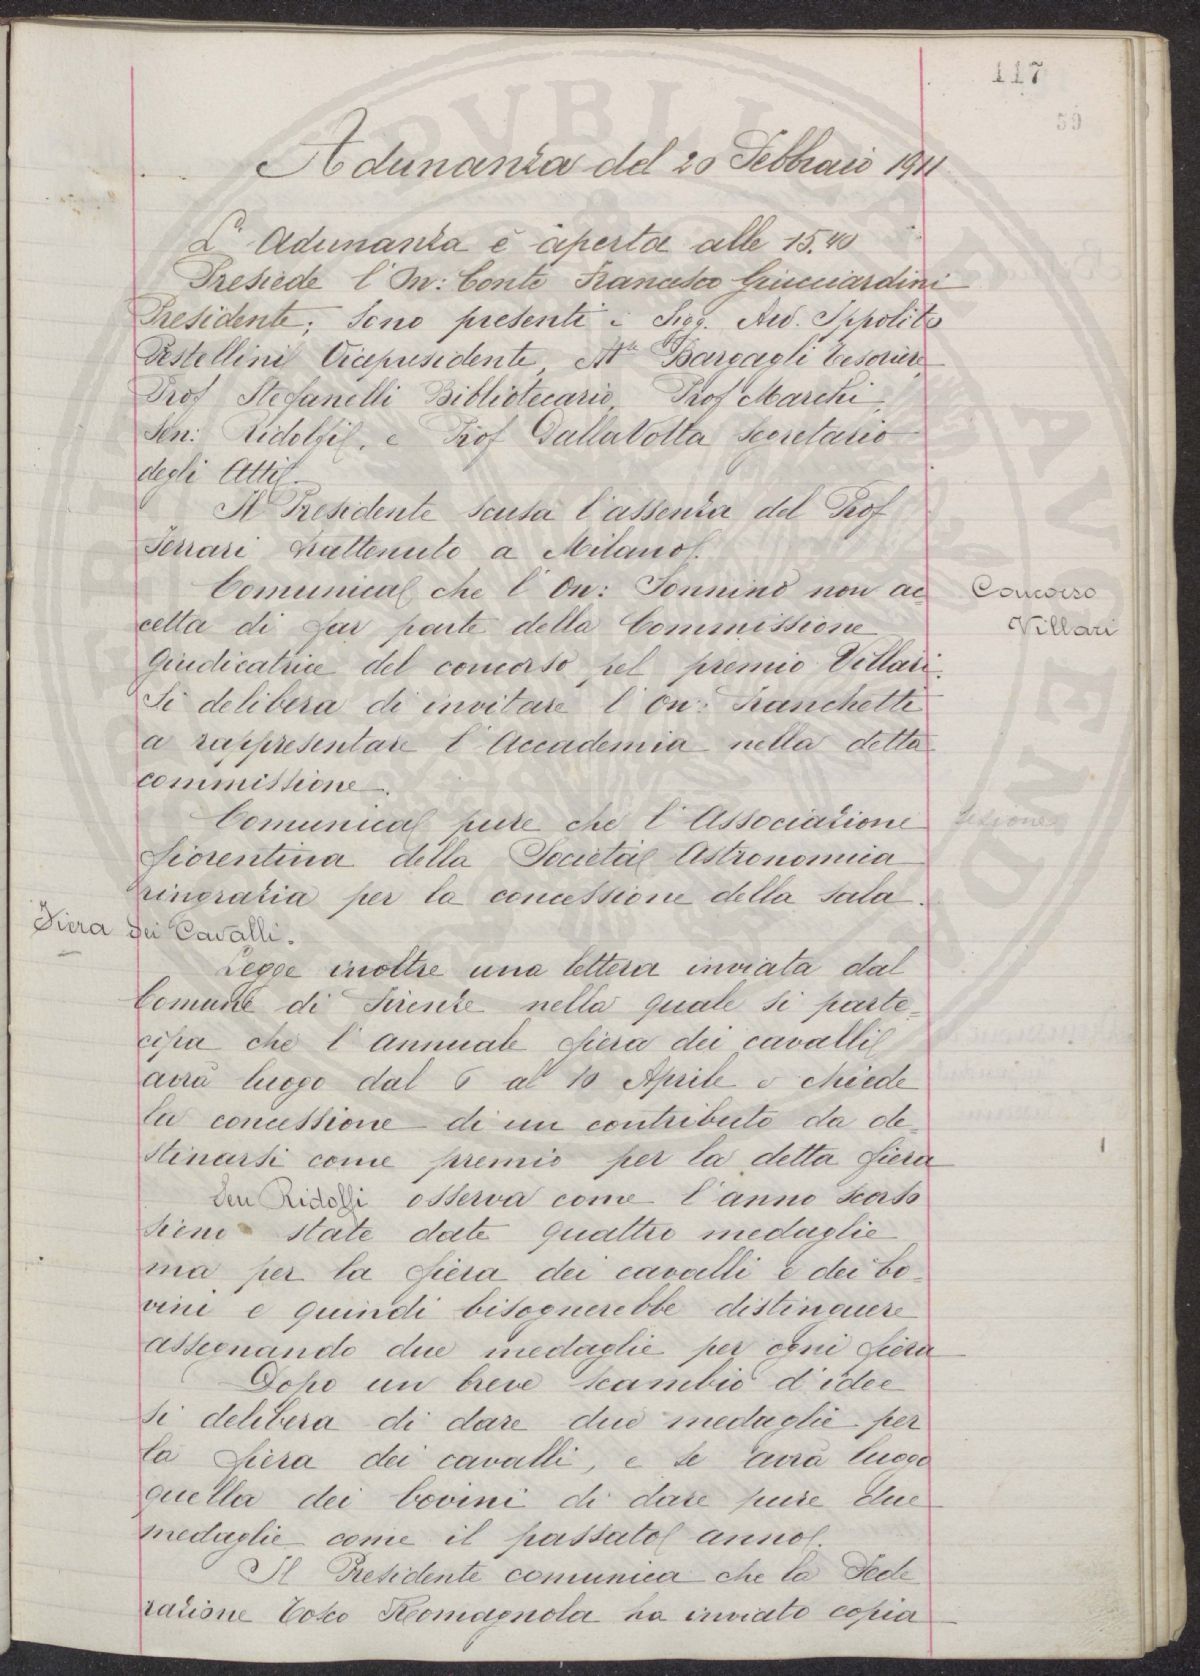 117
59
Adunanza del 20 Febbraio 1911
L'Adunanza è aperta alle 15.40
Presiede l'On: Conte Francesco Guicciardini
Presidente; sono presenti i Sigg. Avv. Ippolito
Pestellini Vicepresidente, Bargagli Tesoriere
Prof Stefanelli Bibliotecario, Prof Marchi,
Sen: Ridolfi, e Prof DallaVolta Segretario
degli Atti.
Il Presidente scusa l'assenza del Prof
Ferrari trattenuto a Milano.
Comunica che l'On: Sonnino non ac-
cetta di far parte della Commissione
Giudicatrice del concorso pel premio Villari.
Si delibera di invitare l'On: Franchetti
a rappresentare l'Accademia nella detta
commissione.
Concorso
Villari
Comunica pure che l'Associazione
fiorentina della Società Astronomica
ringrazia per la concessione della sala.
Fiera dei Cavalli.
Legge inoltre una lettera inviata dal
Comune di Firenze nella quale si parte=
cipa che l'annuale fiera dei cavalli
avrà luogo dal 6 al 10 Aprile e chiede
la concessione di un contributo da de=
stinarsi come premio per la detta fiera
Sen Ridolfi osserva come l'anno scorso
sieno state date quattro medaglie
ma per la fiera dei cavalli e dei bo=
vini e quindi bisognerebbe distinguere
assegnando due medaglie per ogni fiera
Dopo un breve scambio d'idee
si delibera di dare due medaglie per
la fiera dei cavalli, e se avrà luogo
quella dei bovini di dare pure due
medaglie come il passato anno.
Il Presidente comunica che la Fede
razione Tosco Romagnola ha inviato copia